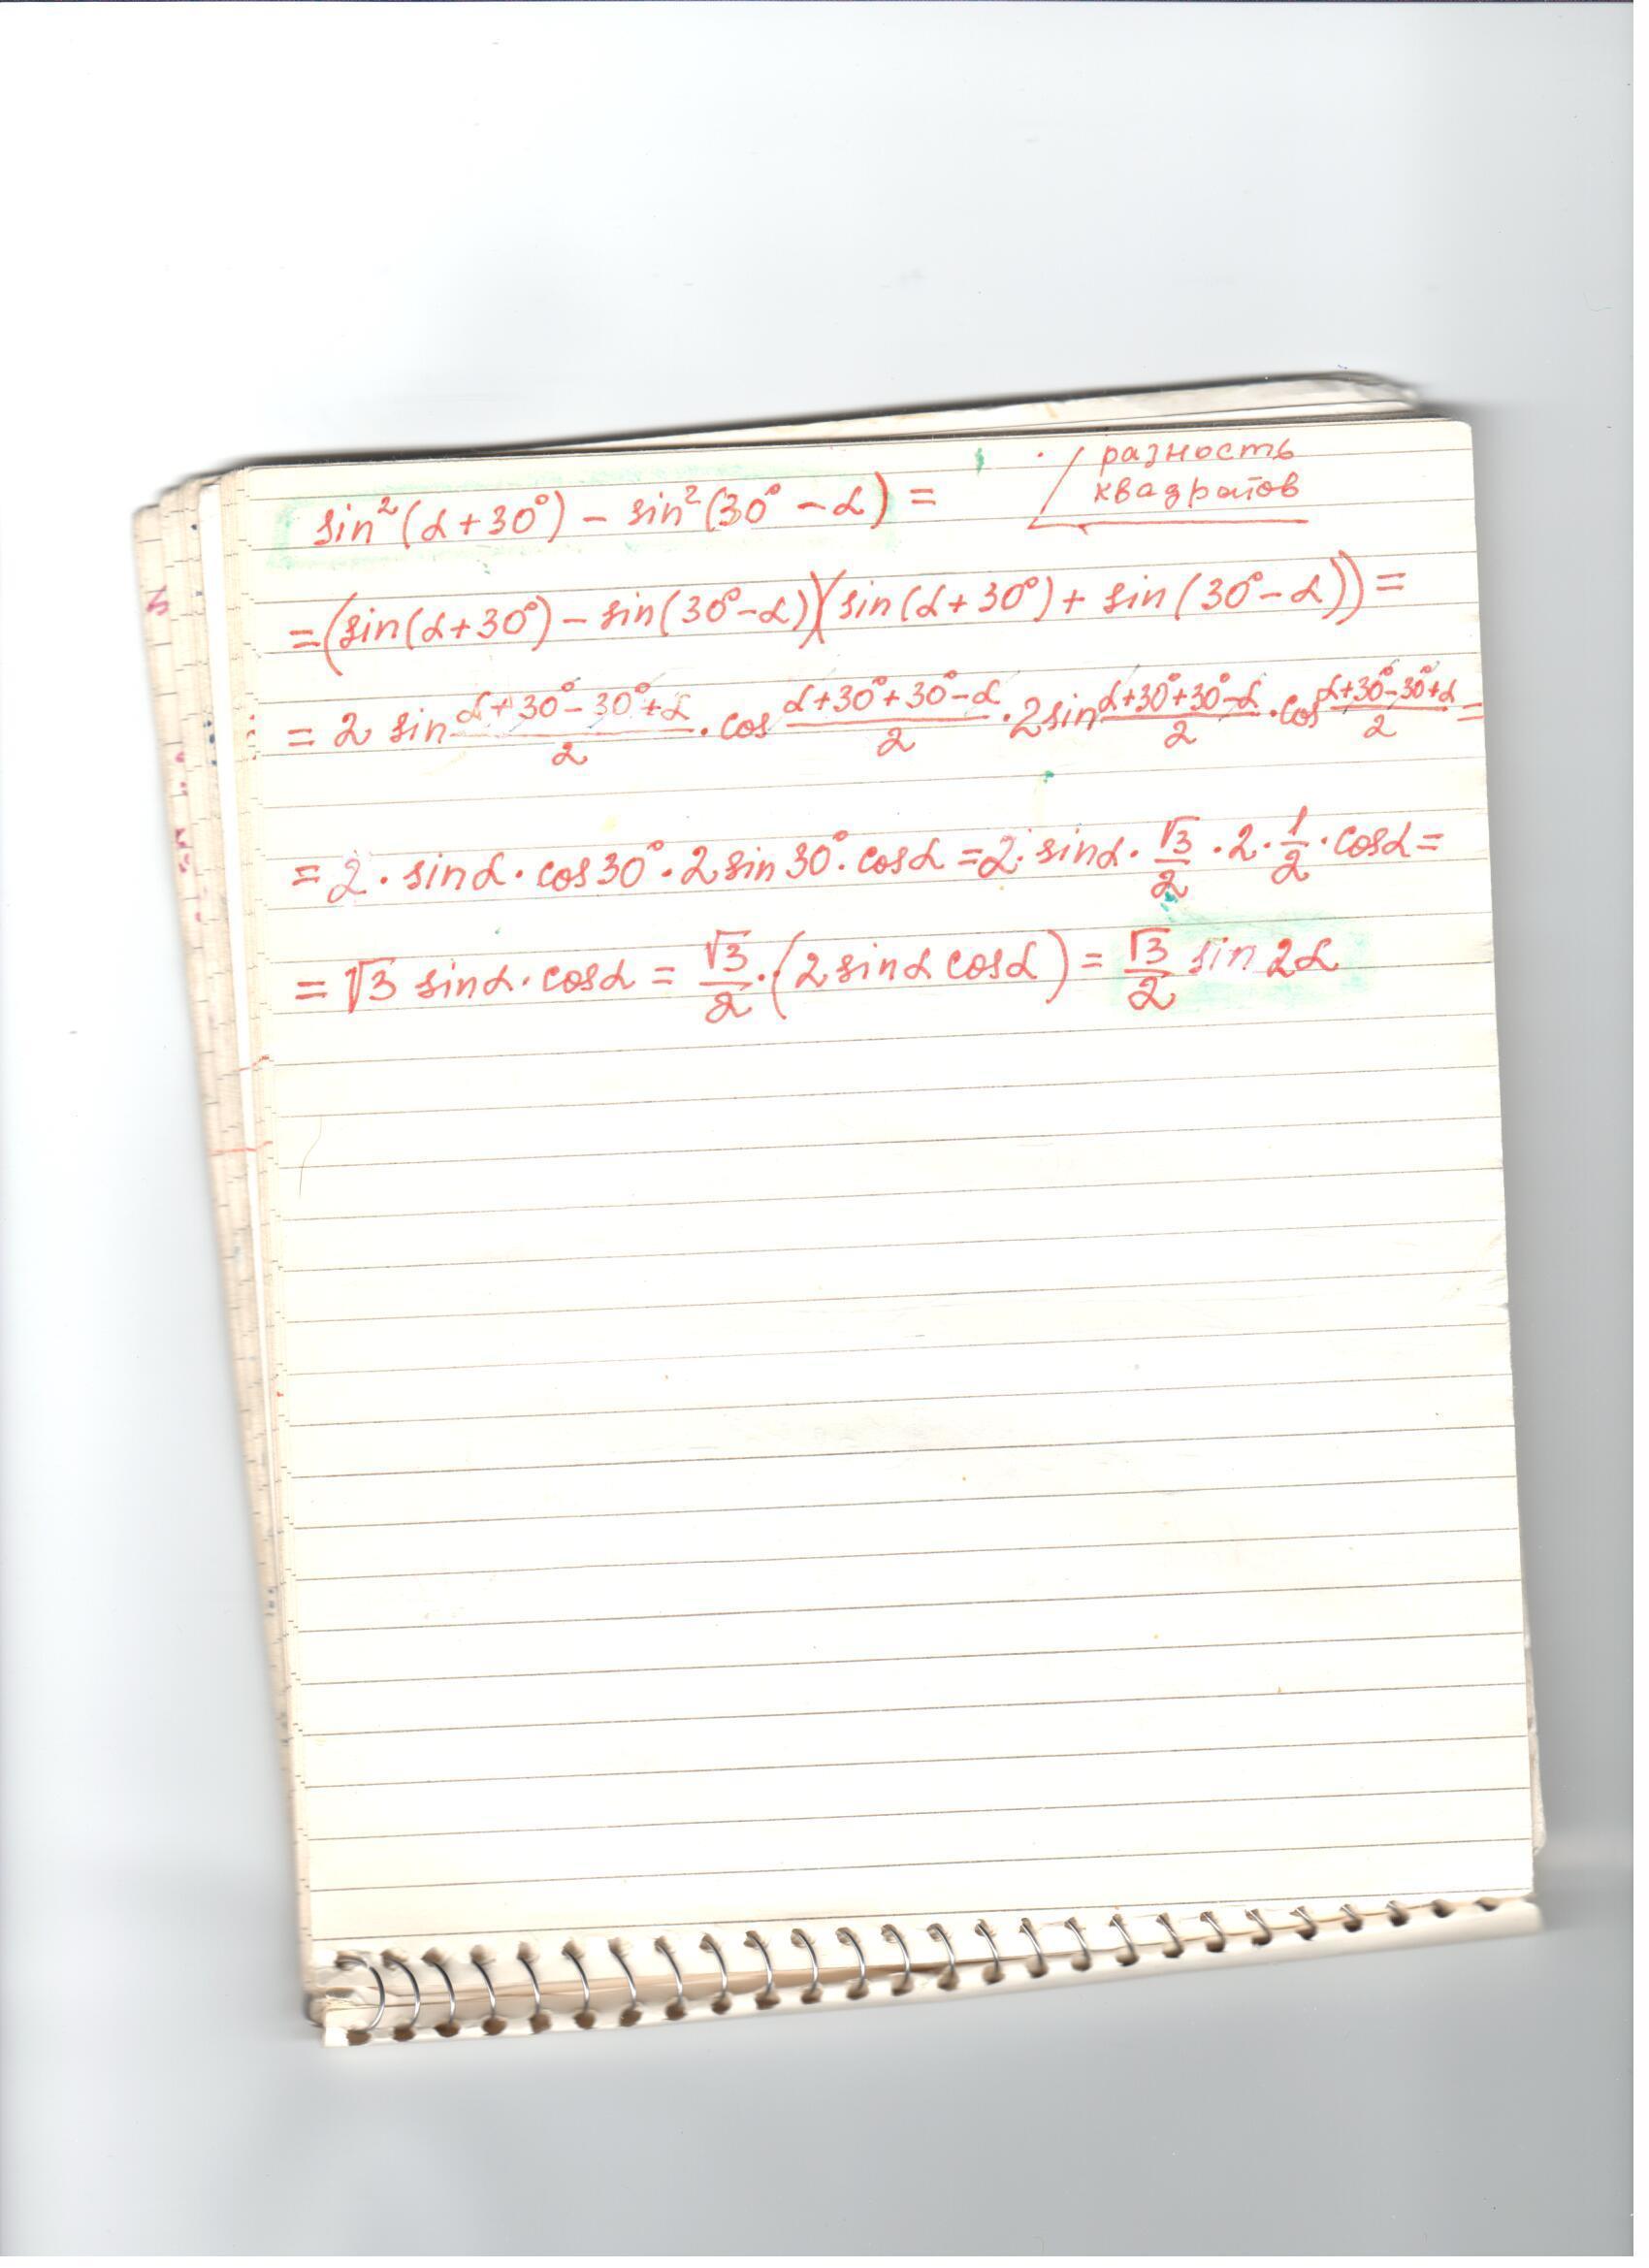 sin²(α+30°) − sin²(30°−α) =
разность
квадратов
=(sin(α+30°) − sin(30°−α))(sin(α+30°) + sin(30°−α)) =
= 2 sin (α+30°−30°+α)/2 · cos (α+30°+30°−α)/2 · 2 sin (α+30°+30°−α)/2 · cos (α+30°−30°+α)/2 =
= 2 · sinα · cos30° · 2 sin30° · cosα = 2 · sinα · √3/2 · 2 · 1/2 · cosα =
= √3 sinα · cosα = √3/2 · (2 sinα cosα) = √3/2 sin 2α